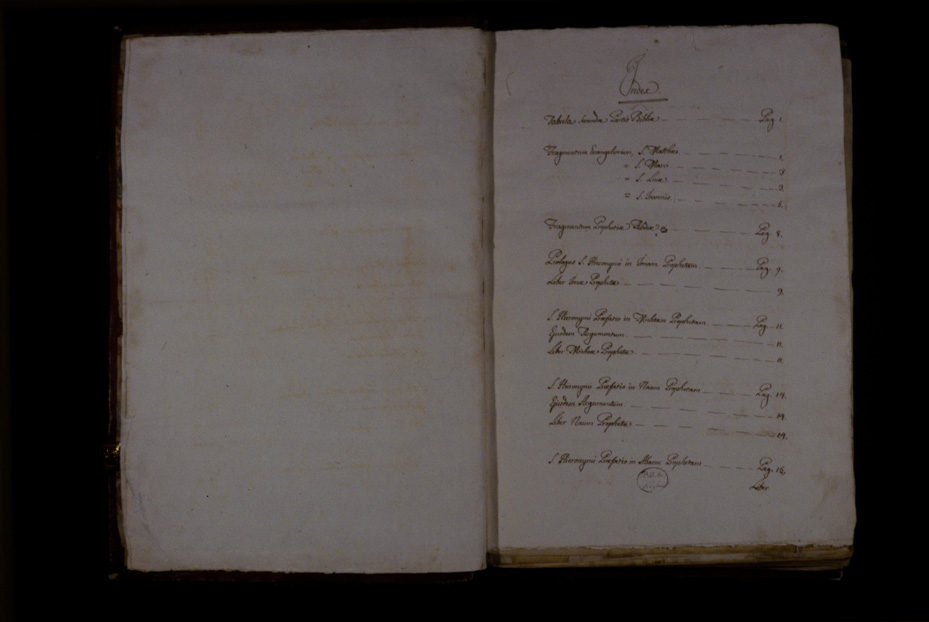 Index
Tabula secundæ Partis Bibliæ Pag. 1.
Fragmentum Evangeliorum, S. Matthei 1.
= S. Marci
= S. Lucæ
= S. Ioannis
Fragmentum Prophetiæ Abdiæ Pag. 8.
Prologus S. Hieronymi in Ionam Prophetam Pag. 9.
Liber Ionæ Prophetæ 9.
S. Hieronymi Præfatio in Michæam Prophetam Pag. 11.
Ejusdem Argumentum 11.
Liber Michææ Prophetæ 11.
S. Hieronymi Præfatio in Naum Prophetam Pag. 14.
Ejusdem Argumentum 14.
Liber Naum Prophetæ 14.
S. Hieronymi Præfatio in Prophetam Pag.
Liber